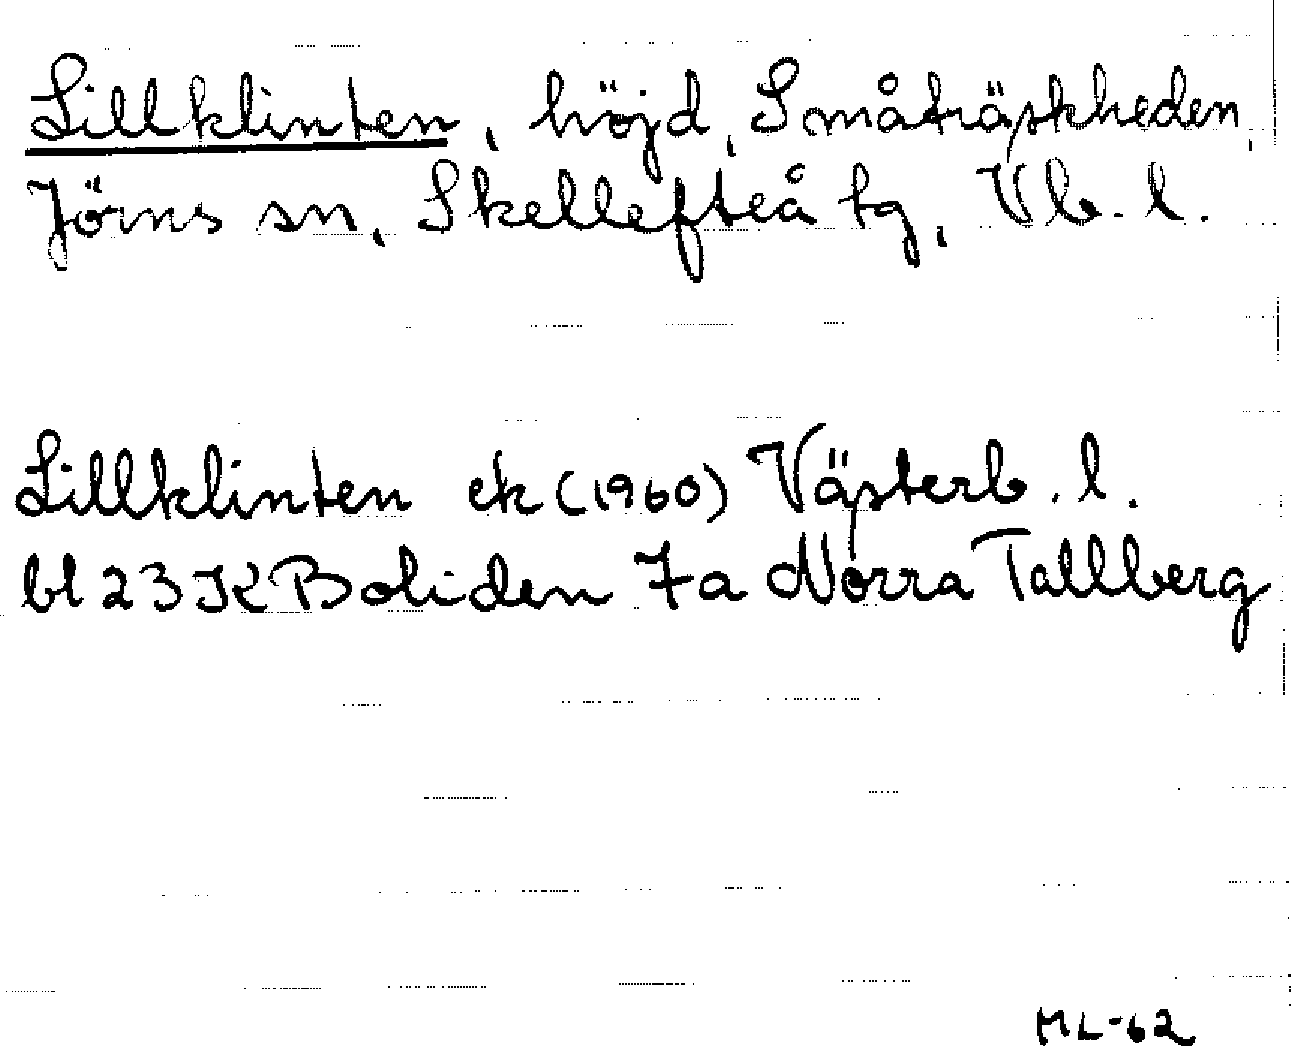 Lillklinten, höjd, Småträskheden,
Jörns sn, Skellefteå tg, Vb. l.
Lillklinten ek (1960) Västerb. l.
bl 23 K Boliden 7a Norra Tallberg
ML-62